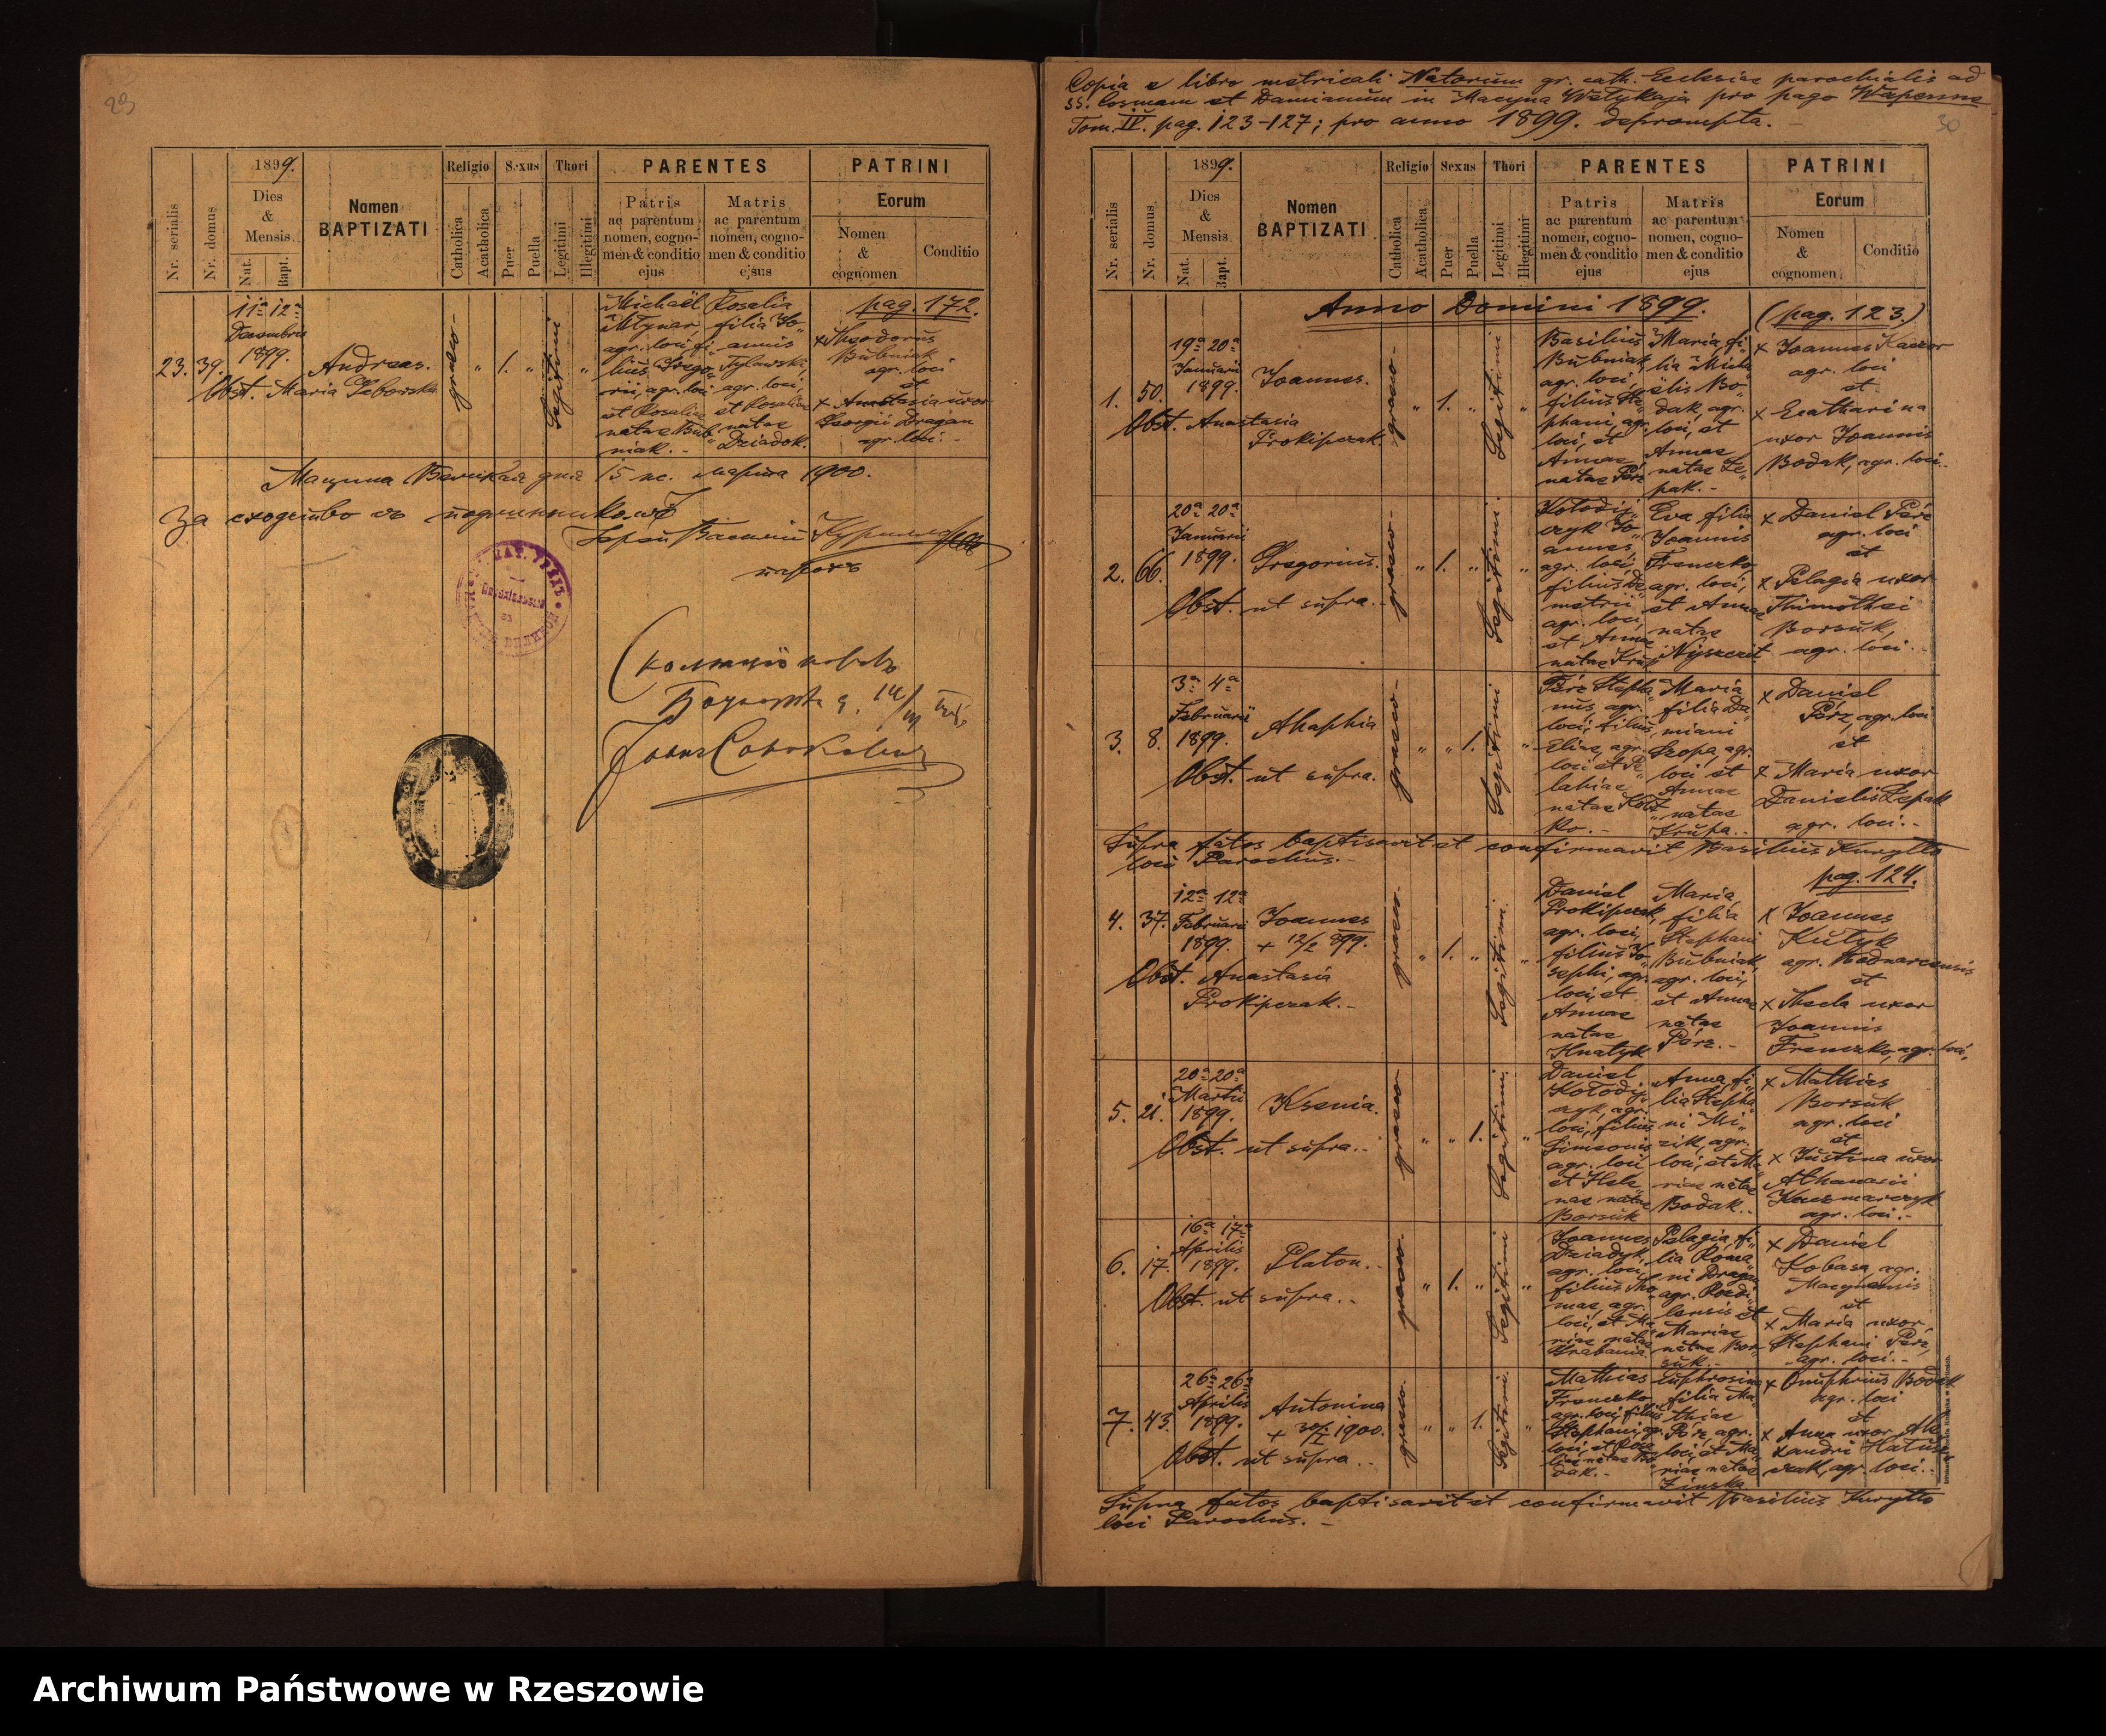 29
1899.
Nr. serialis
Nr. domus
Dies
&
Mensis
Nat.
Bapt.
Nomen
BAPTIZATI
Religio
Catholica
Acatholica
Sexus
Puer
Puella
Thori
Legitimi
Illegitimi
PARENTES
Patris
ac parentum
nomen, cogno-
men & conditio
ejus
Matris
ac parentum
nomen, cogno-
men & conditio
ejsus
PATRINI
Eorum
Nomen
&
cognomen
Conditio
pag. 172.
23. 39.
11a 12a
Decembris
1899.
Andreas.
Obst. Maria
graeco-
" 1. " "
Legitimi
Michaël
Młynar,
agr. loci fi„
lius Grego„
rii, agr. loci
et Rosaliae
natae Bub„
niak. -
Rosalia
filia Jo„
annis
agr. loci,
et Rosaliae
natae
Dziadok.
x Theodorus
Bubniak
agr. loci
et
x Anastasia uxor
Georgii Dragan
agr. loci. -
Мацина Великая дня 15 н. марта 1900.
За сходство съ подлинникомъ
Іерей Василій
парохъ
30
Copia e libro metricali Natorum gr. cath. Ecclesiae parochialis ad
SS. Cosmam et Damianum in Macyna Wełykaja pro pago Wapenne
Tom. IV. pag. 123-127; pro anno 1899. deprompta. -
1899.
Nr. serialis
Nr. domus
Dies
&
Mensis
Nat.
Bapt.
Nomen
BAPTIZATI
Religio
Catholica
Acatholica
Sexus
Puer
Puella
Thori
Legitimi
Illegitimi
PARENTES
Patris
ac parentum
nomen, cogno-
men & conditio
ejus
Matris
ac parentum
nomen, cogno-
men & conditio
ejus
PATRINI
Eorum
Nomen
&
cognomen
Conditio
Anno Domini 1899. (pag. 123.)
1. 50.
19a 20a
Januarii
1899.
Joannes.
Obst. Anastasia
Prokipczak.
graeco-
" 1. " "
Legitimi
Basilius
Bubniak,
agr. loci,
filius Ste„
phani, agr.
loci, et
Annae
natae Pérz
Maria fi„
lia Micha„
ëlis Bo„
dak, agr.
loci, et
Annae
natae Le„
pak. -
x Joannes
agr. loci
et
x Ecatharina
uxor Joannis
Bodak, agr. loci. -
2. 66.
20a 20a
Januarii
1899.
Gregorius.
Obst. ut supra. -
graeco-
" 1. " "
Legitimi
Kołodij„
czyk Jo„
annes,
agr. loci,
filius De„
metrii
agr. loci,
et Annae
natae
Eva filia
Joannis
Frenczko,
agr. loci,
et Annae
natae
x Daniel Pérz
agr. loci
et
x Pelagia uxor
Thimothei
Borsuk,
agr. loci. -
3. 8.
3a 4a
Februarii
1899.
Ahaphia
Obst. ut supra.
graeco-
" " 1. "
Legitimi
Pérz Stepha„
nus, agr.
loci, filius
Eliae, agr.
loci et Pe„
lahiae
natae
ko. -
Maria
filia Da„
miani
Szopa, agr.
loci et
Annae
natae
Krupa. -
x Daniel
Pérz, agr. loci
et
x Maria uxor
Danielis Lepak
agr. loci. -
Supra fatos baptisavit et confirmavit Basilius Kuryłło
loci Parochus. -
pag. 124.
4. 37.
12a 12a
Februarii
1899.
Joannes
+ 12/2 899.
Obst. Anastasia
Prokipczak. -
graeco-
" 1. " "
Legitimi
Daniel
Prokipczak,
agr. loci,
filius Jo„
sephi, agr.
loci, et
Annae
natae
Hnatyk
Maria,
filia
Stephani
Bubniak,
agr. loci,
et Annae
natae
Pérz. -
x Joannes
Kutyk
agr.
et
x Thecla uxor
Joannis
Frenczko, agr. loci,
5. 21.
20a 20a
Martii
1899.
Ksenia.
Obst. ut supra. -
graeco-
" " 1. "
Legitimi
Daniel
Kołodij„
czyk, agr.
loci, filius
Simeonis
agr. loci
et Hele„
nae natae
Borsuk
Anna, fi„
lia Stepha„
ni Mi„
zik, agr.
loci, et Ma„
riae natae
Bodak. -
x Mathias
Borsuk
agr. loci
et
x Justina uxor
Athanasii
agr. loci. -
6. 17.
16a 17a
Aprilis
1899.
Platon. -
Obst. ut supra. -
graeco-
" 1. " "
Legitimi
Joannes
Dziadyk,
agr. loci,
filius Tho„
mae, agr.
loci, et Ma„
riae natae
Pelagia, fi„
lia Roma„
ni Dragan
agr. Rozdi„
lensis et
Mariae
natae Bor„
suk. -
x Daniel
Kobasa, agr.
Macynensis
et
x Maria uxor
Stephani Pérz,
agr. loci. -
7. 43.
26a 26a
Aprilis
1899.
Antonina
+ 1900.
Obst. ut supra. -
graeco-
" " 1. "
Legitimi
Mathias
Frenczko,
agr. loci, filius
Stephani, agr.
loci, et Rosa„
liae natae Bo„
dak. -
Euphrosina
filia Ma„
thiae
Pérz, agr.
loci, et Ma„
riae natae
x Onuphrius Bodak
agr. loci
et
x Anna uxor Ale„
xandri
agr. loci. -
Supra fatos baptisavit et confirmavit Basilius Kuryłło
loci Parochus. -
Archiwum Państwowe w Rzeszowie